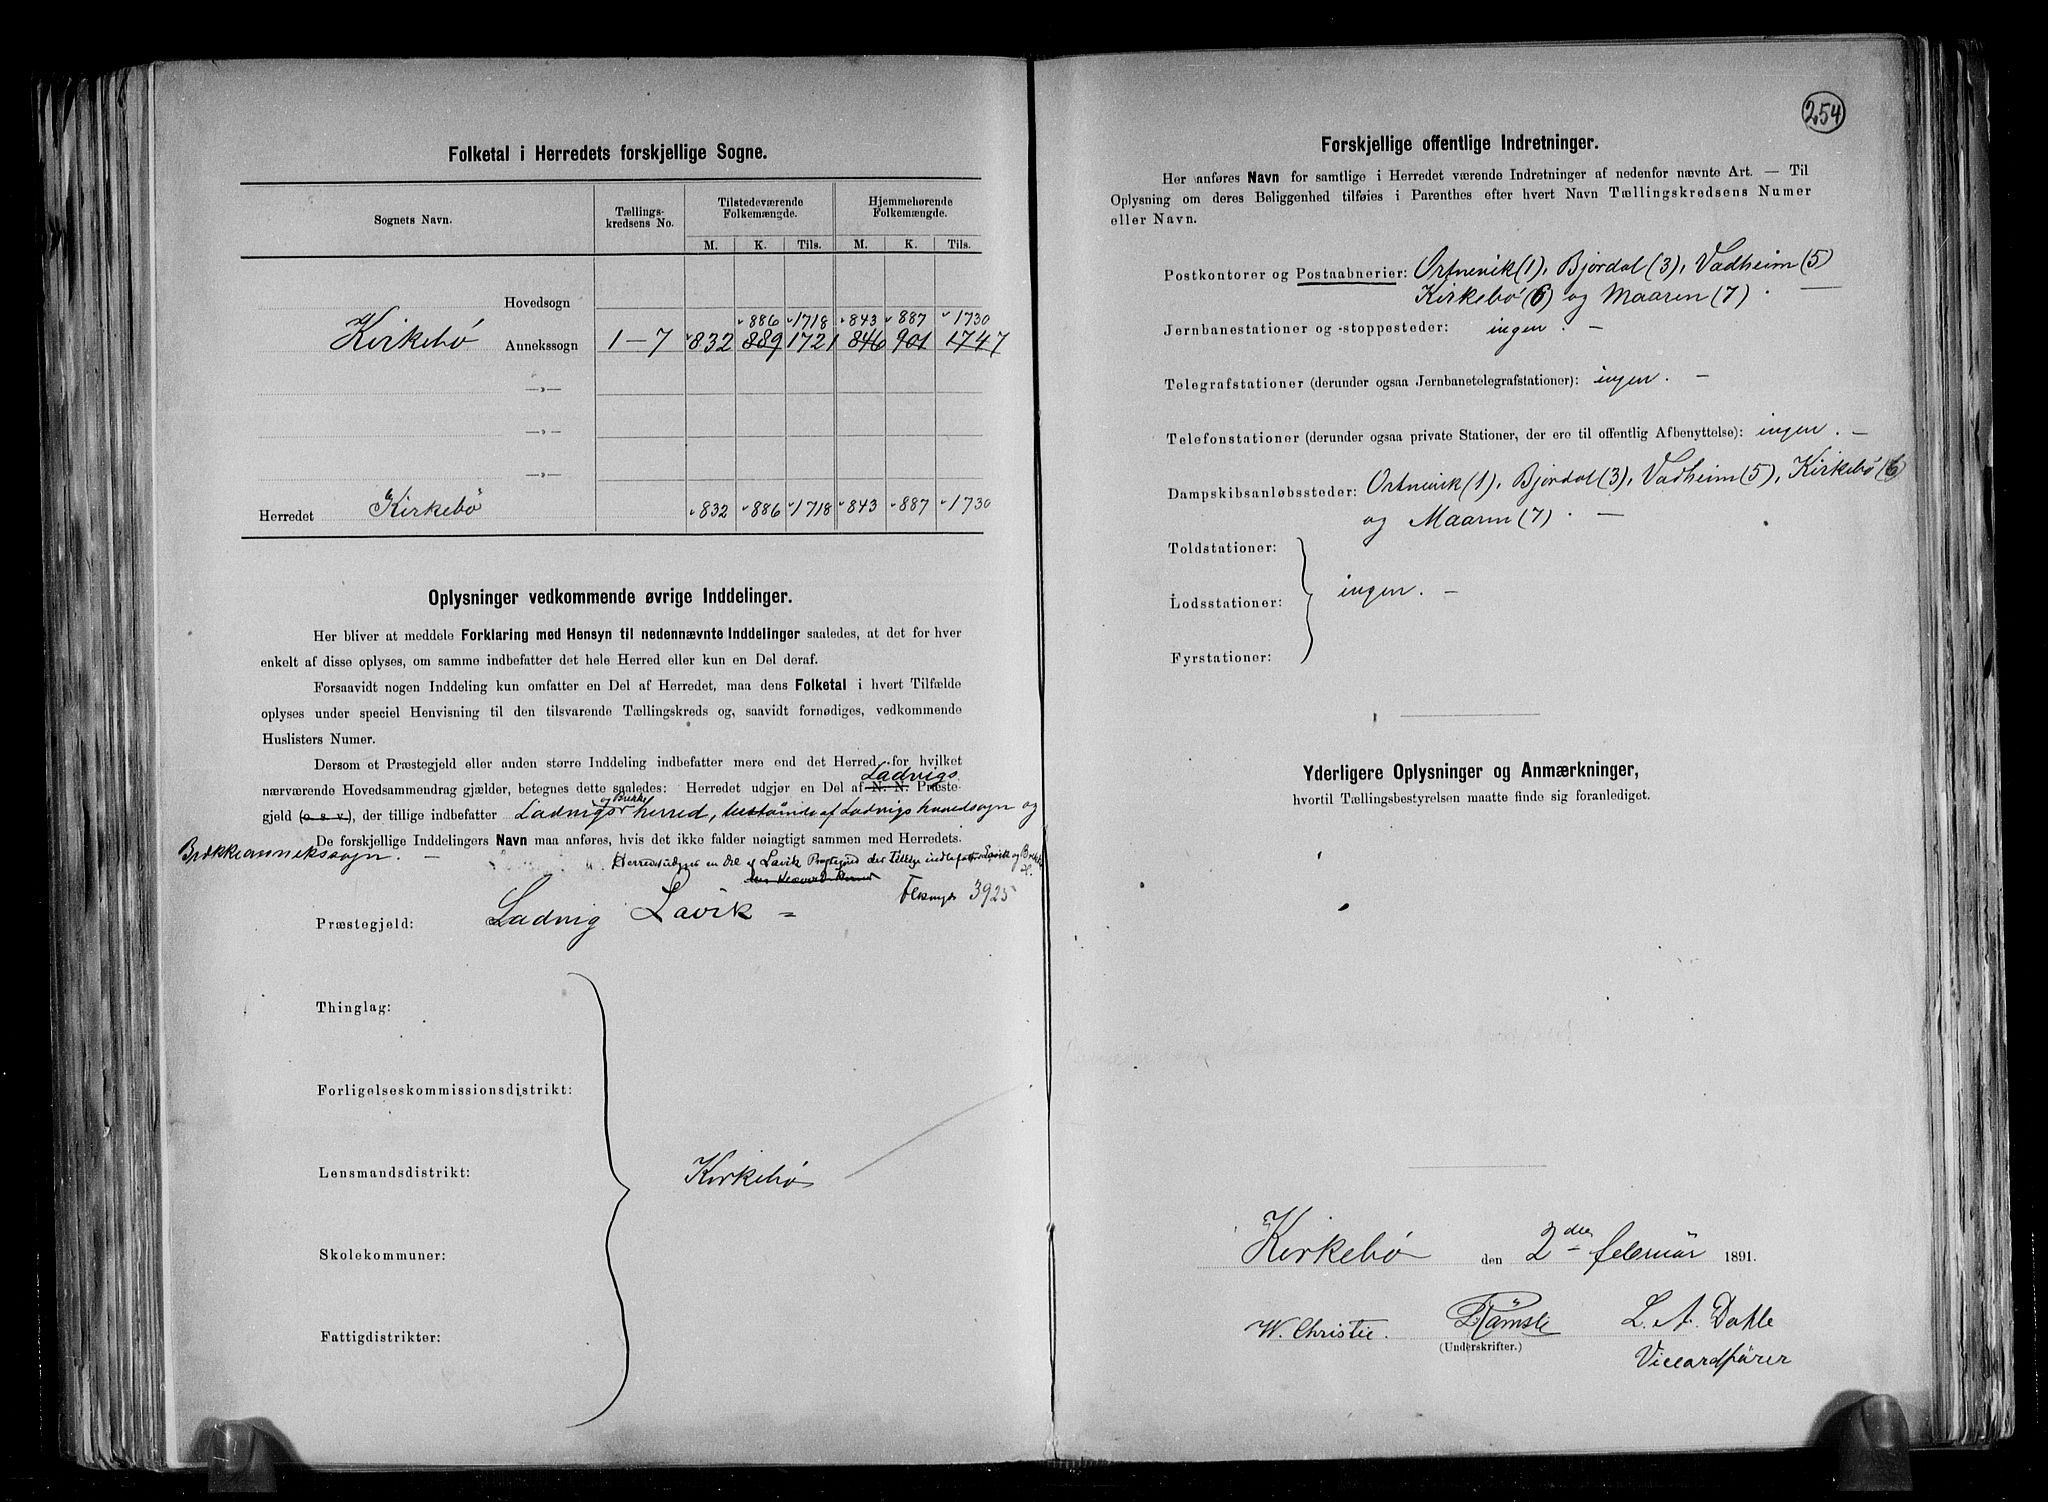 Folketal i Herredets forskjellige Sogne.
Sognets Navn.
Tællings-
kredsens No.
Tilstedeværende
Folkemængde.
Hjemmehørende
Folkemængde.
M. K. Tils. M. K. Tils.
Hovedsogn
886 1718 843 887 1730
Kirkebø Annekssogn 1-7 832 889 1721 846 901 1747
—»—
—»—
—»—
Herredet Kirkebø 832 886 1718 843 887 1730
Oplysninger vedkommende øvrige Inddelinger.
Her bliver at meddele Forklaring med Hensyn til nedennævnte Inddelinger saaledes, at det for hver
enkelt af disse oplyses, om samme indbefatter det hele Herred eller kun en Del deraf.
Forsaavidt nogen Inddeling kun omfatter en Del af Herredet, maa dens Folketal i hvert Tilfælde
oplyses under speciel Henvisning til den tilsvarende Tællingskreds og, saavidt fornødiges, vedkommende
Huslisters Numer.
Dersom et Præstegjeld eller anden større Inddeling indbefatter mere end det Herred, for hvilket
Ladvigs
nærværende Hovedsammendrag gjælder, betegnes dette saaledes: Herredet udgjør en Del af N. N. Præste-
og Brekke
gjeld (o. s. v.), der tillige indbefatter Ladvigs herred, bestående af Ladvigs hovedsogn og
De forskjellige Inddelingers Navn maa anføres, hvis det ikke falder nøiagtigt sammen med Herredets.
Brekke annekssogn. —
Herred udgjør en Del af Lavik Præstegjeld der Tillige indbefatter Lavik og Brekke
H.
3925
Præstegjeld: Ladvig Lavik
Thinglag:
Forligelseskommissionsdistrikt:
Lensmandsdistrikt: Kirkebø
Skolekommuner:
Fattigdistrikter:
254
Forskjellige offentlige Indretninger.
Her anføres Navn for samtlige i Herredet værende Indretninger af nedenfor nævnte Art. — Til
Oplysning om deres Beliggenhed tilføies i Parenthes efter hvert Navn Tællingskredsens Numer
eller Navn.
Postkontorer og Postaabnerier: Ortnevik (1), Bjordal (3), Vadheim (5)
Kirkebø (6) og Maaren (7). —
Jernbanestationer og -stoppesteder: ingen. —
Telegrafstationer (derunder ogsaa Jernbanetelegrafstationer): ingen. —
Telefonstationer (derunder ogsaa private Stationer, der ere til offentlig Afbenyttelse): ingen. —
Dampskibsanløbssteder: Ortnevik (1), Bjordal (3), Vadheim (5), Kirkebø (6)
og Maaren (7). —
Toldstationer:
Lodsstationer: ingen. —
Fyrstationer:
Yderligere Oplysninger og Anmærkninger,
hvortil Tællingsbestyrelsen maatte finde sig foranlediget.
Kirkebø den 2den februar 1891.
W. Christie. L. A. Dahle
(Underskrifter.)
Viceordfører